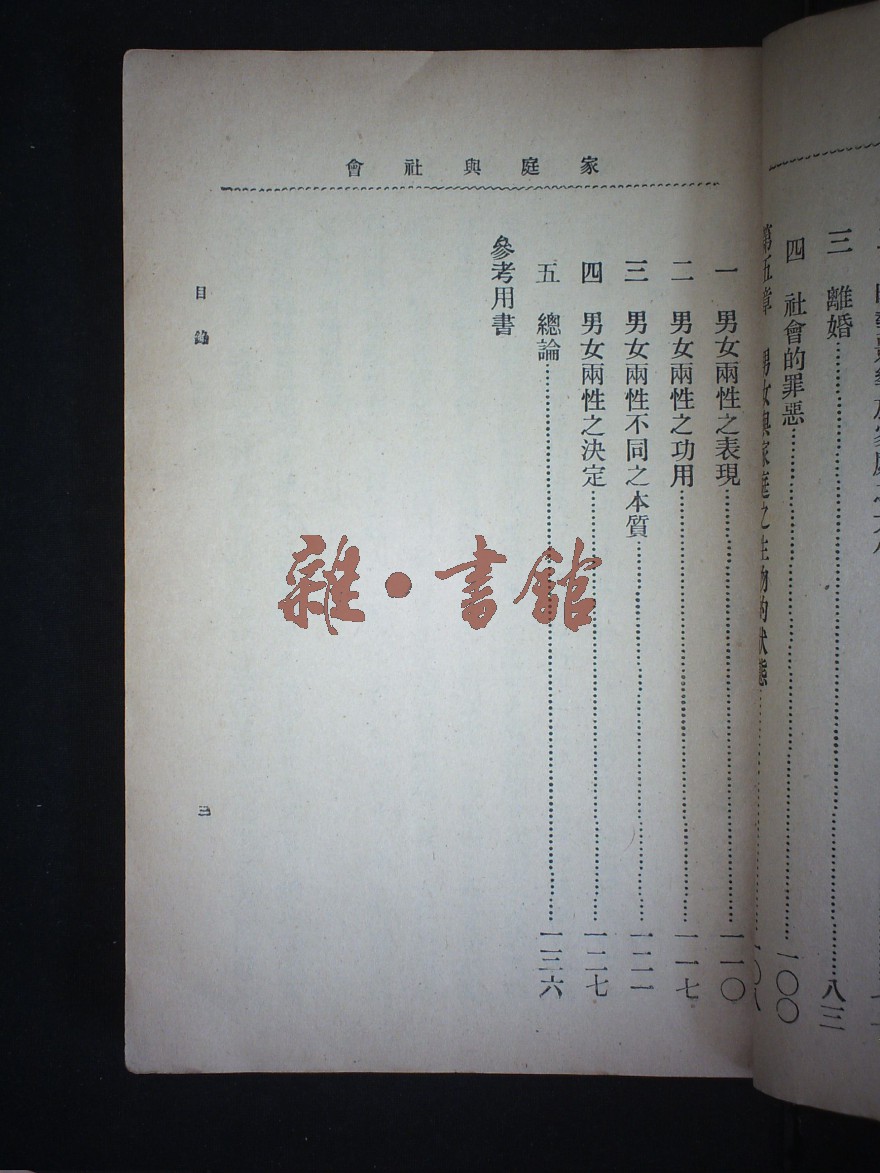 家庭與社會
三 離婚……八三
四 社會的罪惡……一〇〇
第五章 男女與家庭之生物的狀態……一〇八
一 男女兩性之表現……一一〇
二 男女兩性之功用……一一七
三 男女兩性不同之本質……一二一
四 男女兩性之決定……一二七
五 總論……一三六
參考用書
目錄
三
雜·書館